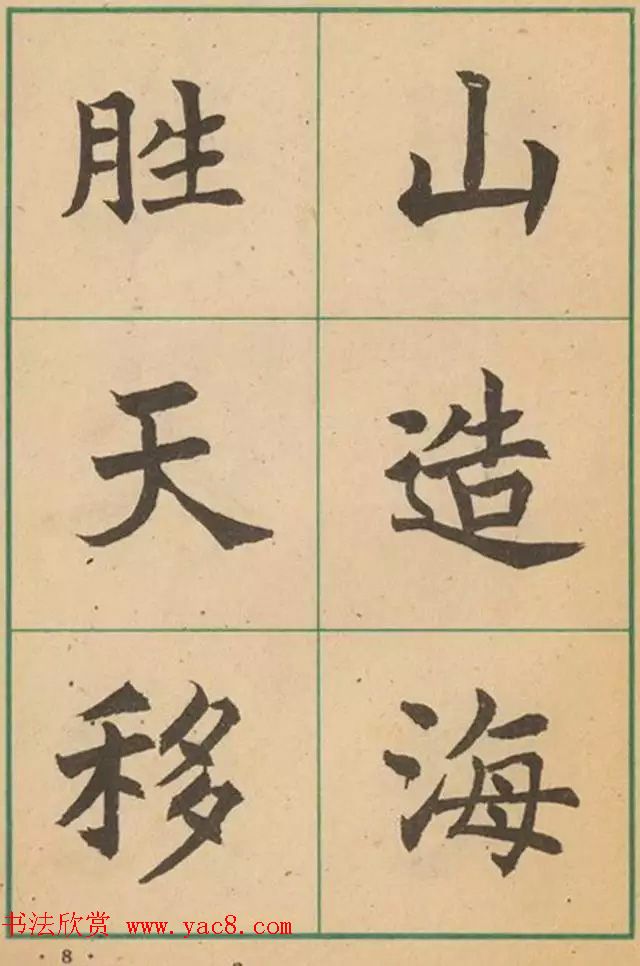 胜天移
山造海
书法欣赏 www.yac8.com
· 8 ·